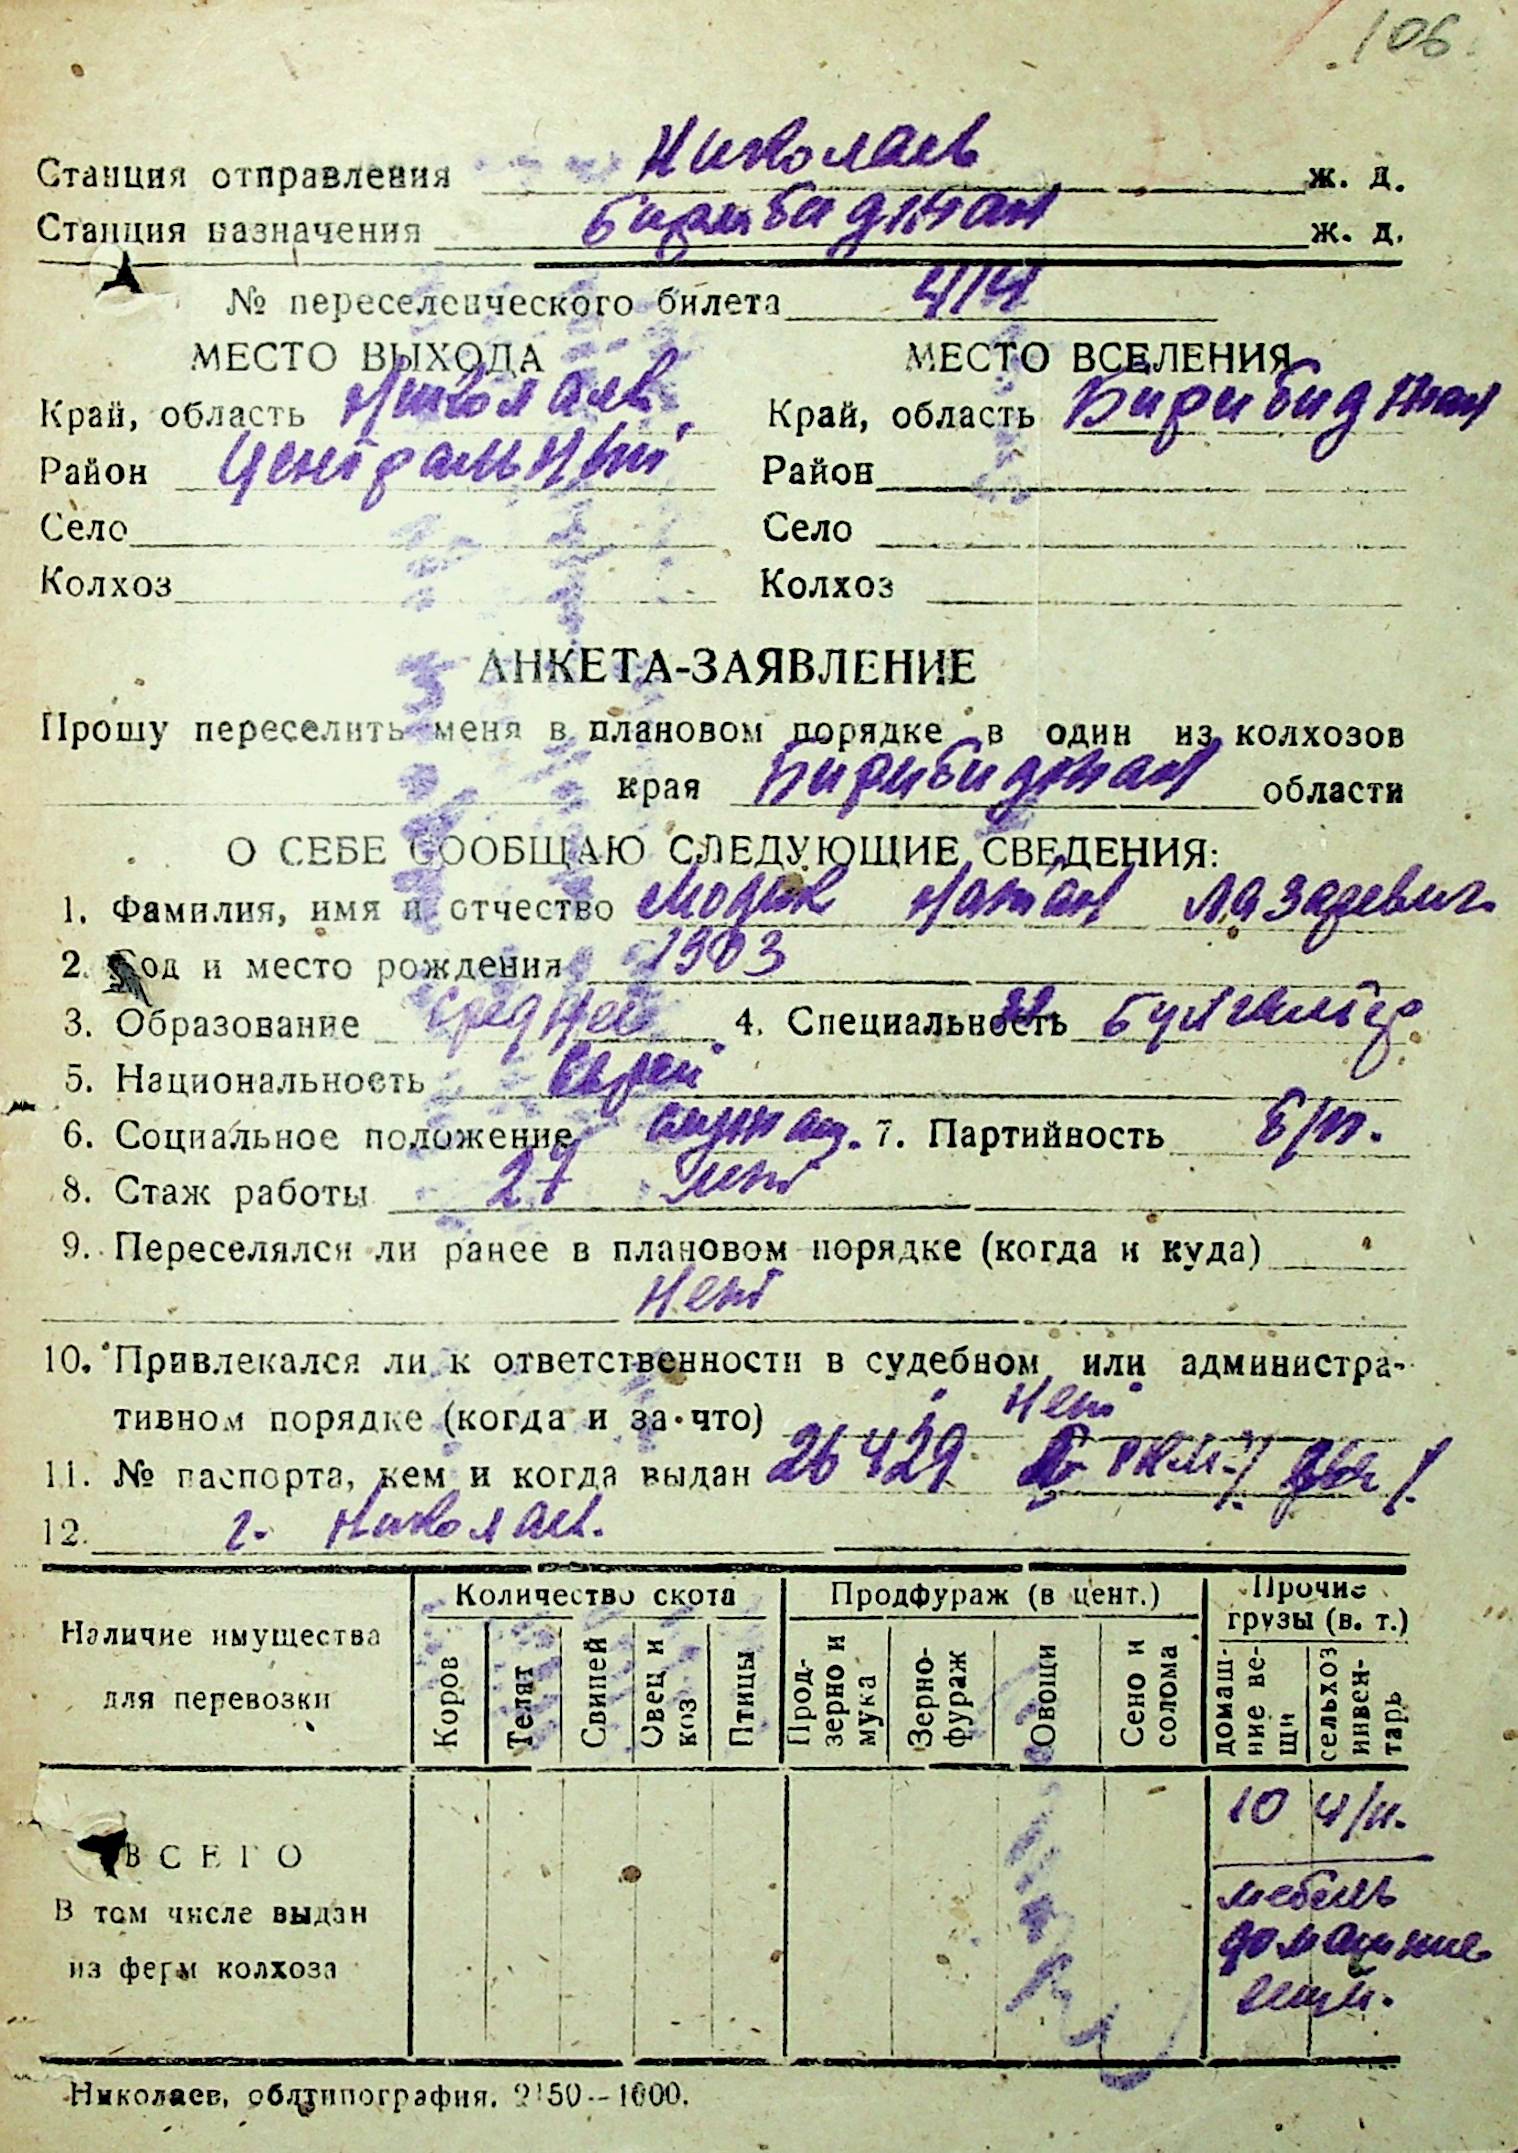 106
Станция отправления Николаев ж. д.
Станция назначения Биробиджан ж. д.
№ переселенческого билета
МЕСТО ВЫХОДА МЕСТО ВСЕЛЕНИЯ
Край, область Николаев Край, область Биробиджан
Район Центральный Район
Село Село
Колхоз Колхоз
АНКЕТА-ЗАЯВЛЕНИЕ
Прошу переселить меня в плановом порядке в один из колхозов
края Биробиджан области
О СЕБЕ СООБЩАЮ СЛЕДУЮЩИЕ СВЕДЕНИЯ:
1. Фамилия, имя и отчество Натан Лазаревич
2. Год и место рождения 1903
3. Образование среднее 4. Специальность Бухгалтер
5. Национальность Еврей
6. Социальное положение служащ. 7. Партийность б/п.
8. Стаж работы 27 лет
9. Переселялся ли ранее в плановом порядке (когда и куда)
Нет
10. Привлекался ли к ответственности в судебном или администра-
тивном порядке (когда и за что) Нет
11. № паспорта, кем и когда выдан 26429
12. г. Николаев.
Наличие имущества для перевозки
Количество скота Продфураж (в цент.) Прочие грузы (в. т.)
Коров Телят Свиней Овец и коз Птицы Прод-зерно и мука Зерно-фураж Овощи Сено и солома домаш-ние ве-щи сельхоз инвен-тарь
ВСЕГО 10
В том числе выдан мебель
из ферм колхоза домашние
вещи.
Николаев, облтипография. 2150—1000.